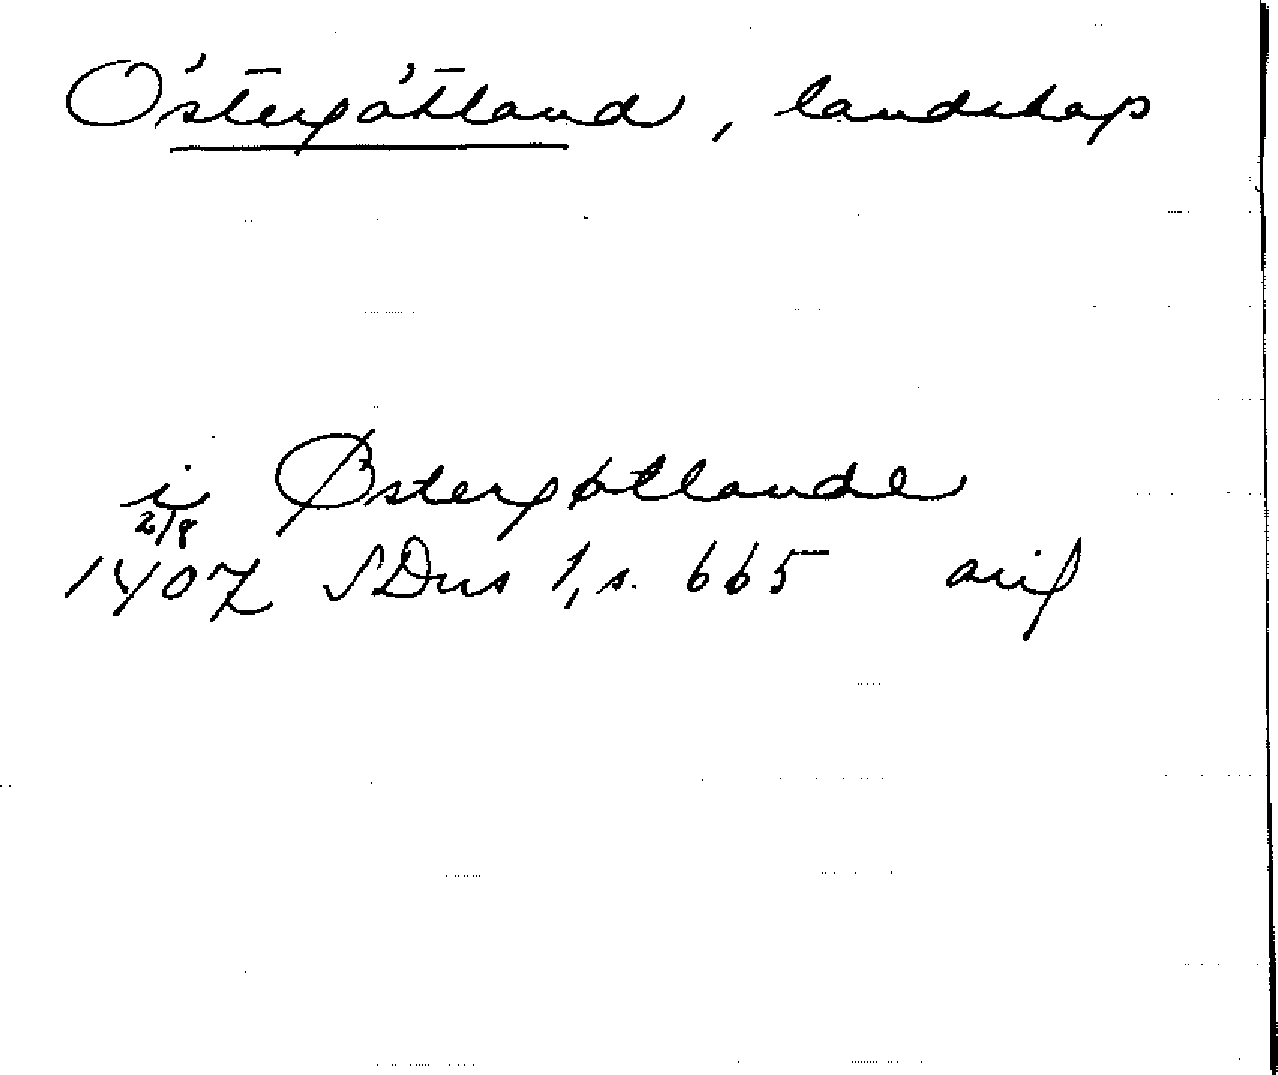 Östergötland, landskap
i Østergøtlande
2/8
1407 SDns 1, s. 665 avif